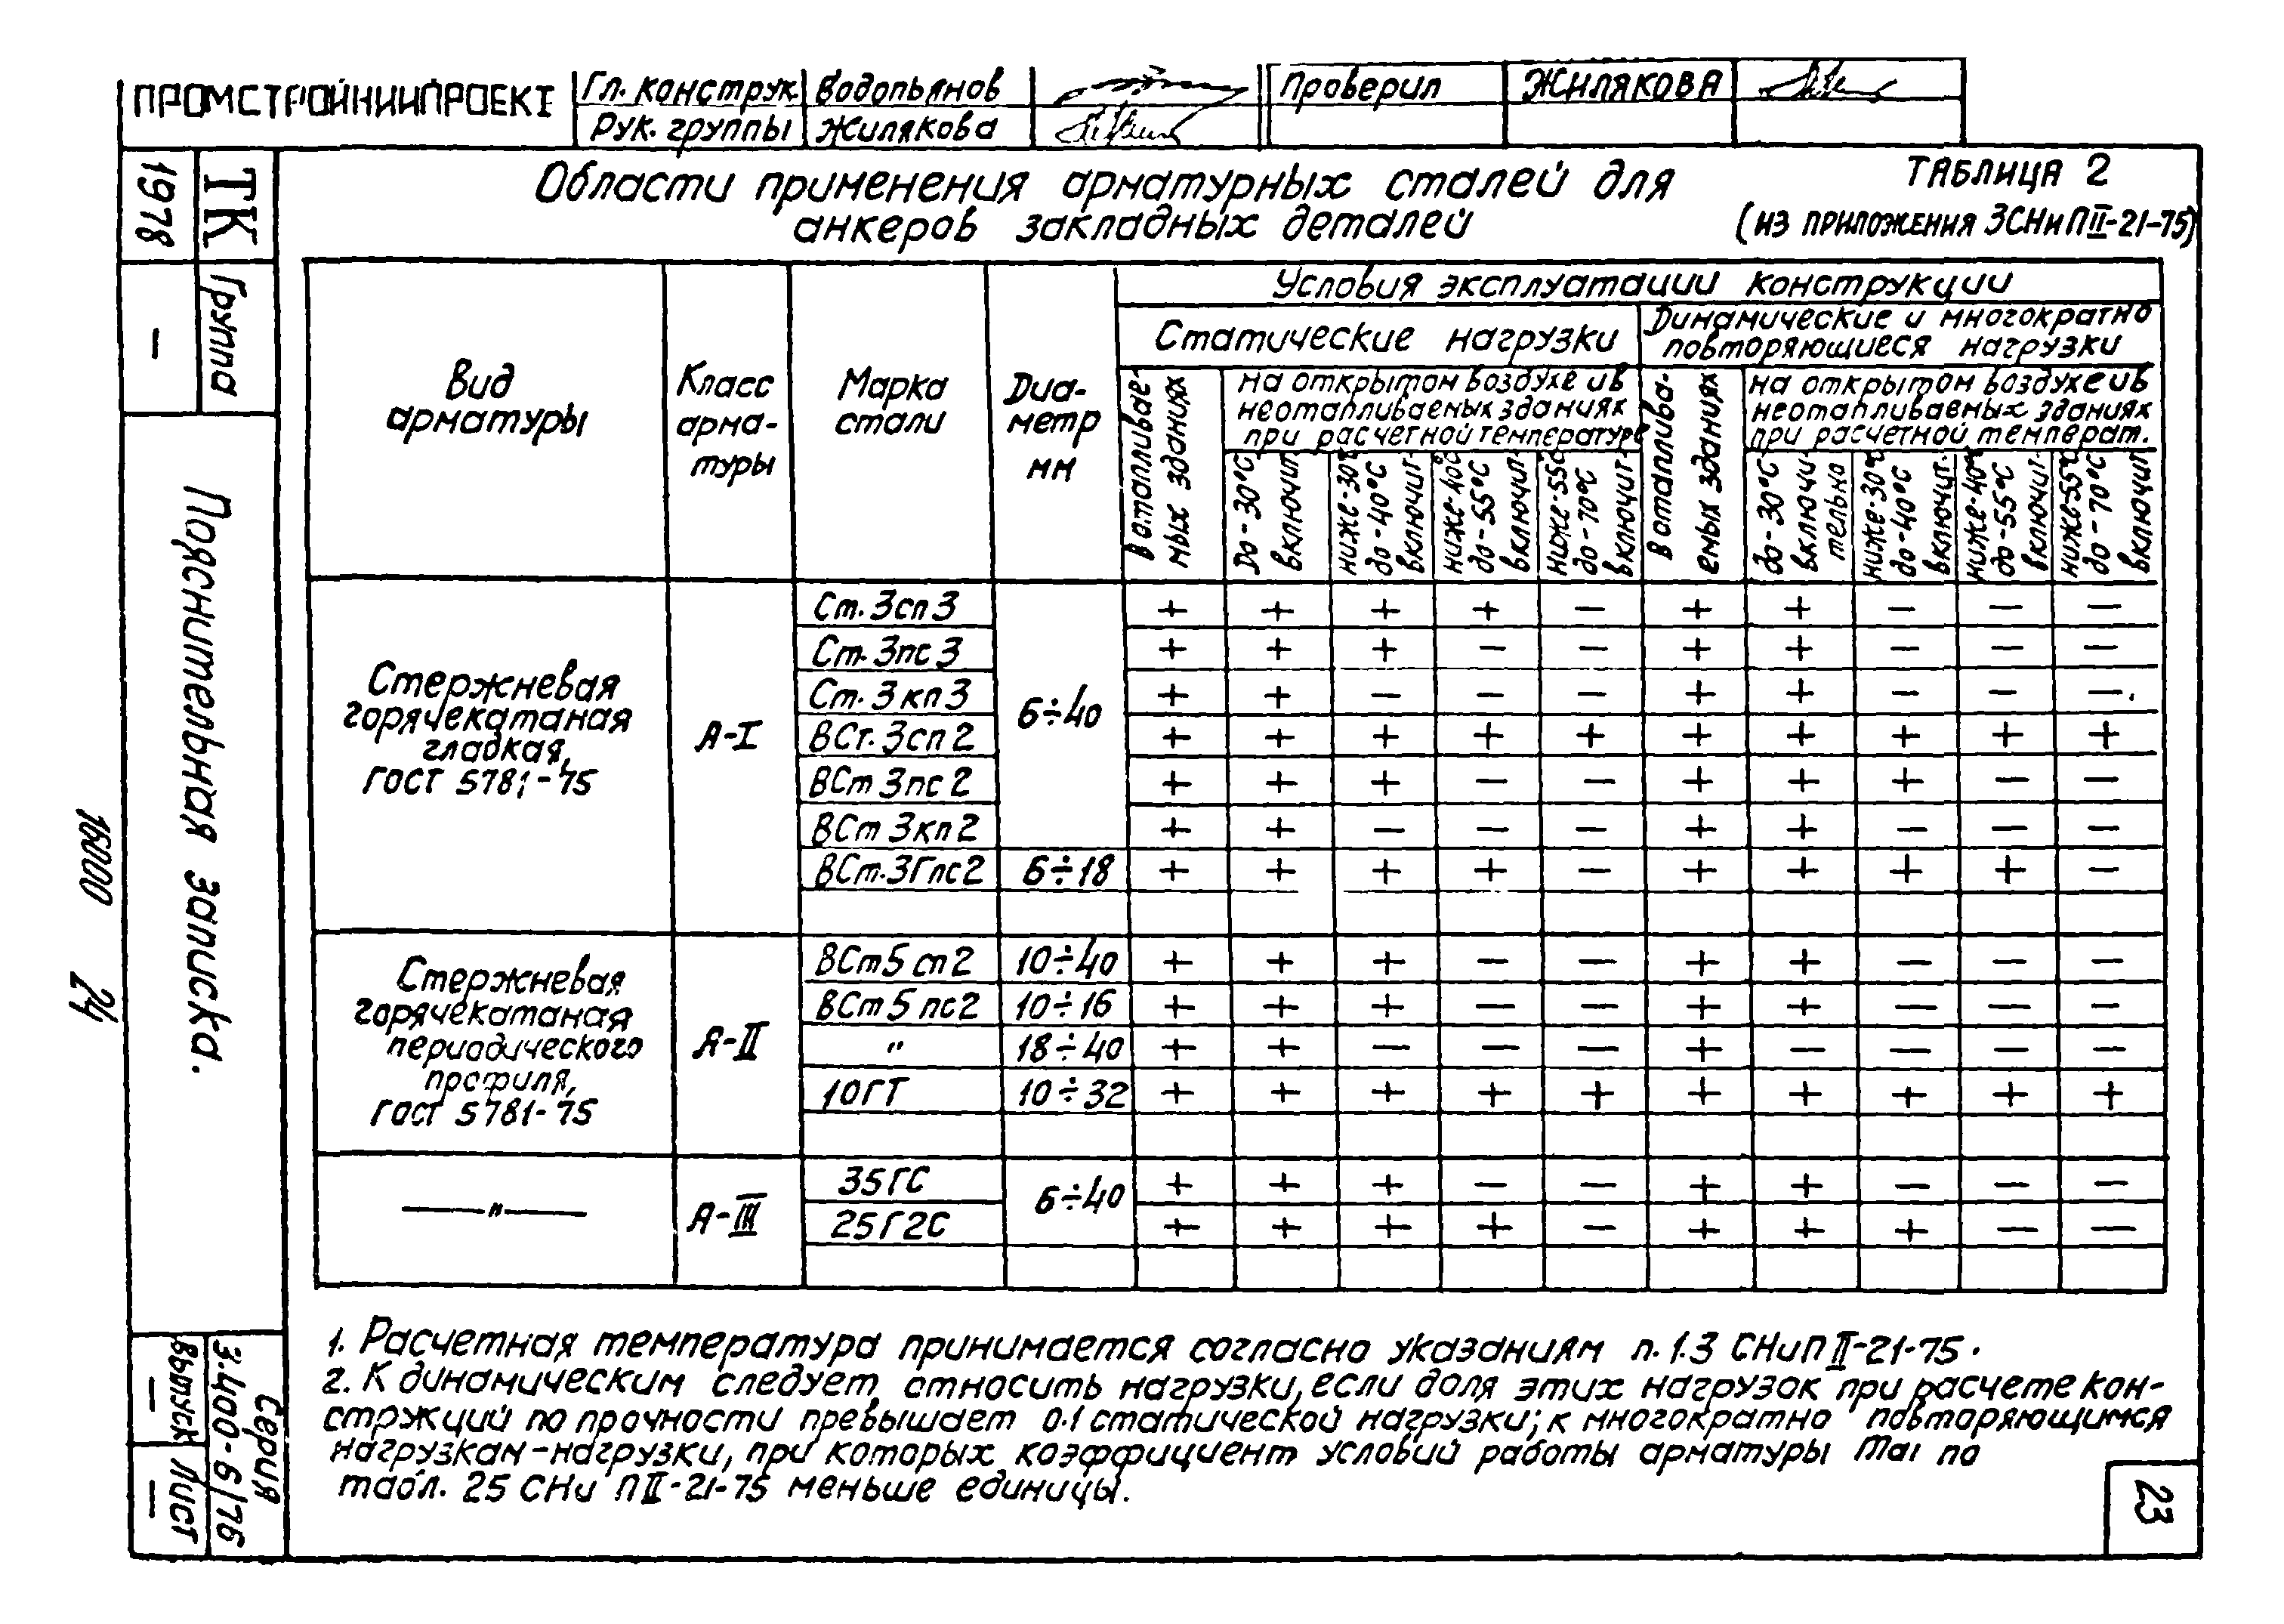 ПРОМСТРОЙНИИПРОЕКТ
Гл. конструк. Водопьянов
Рук. группы Жилякова
Проверил ЖИЛЯКОВА
ТК
1978
Группа
—
Пояснительная записка.
16000 24
Серия
3.400-6/76
Выпуск
—
Лист
—
Области применения арматурных сталей для
анкеров закладных деталей
ТАБЛИЦА 2
(ИЗ ПРИЛОЖЕНИЯ 3СНиП II-21-75)
Вид
арматуры
Класс
арма-
туры
Марка
стали
Диа-
метр
мм
Условия эксплуатации конструкции
Статические нагрузки
Динамические и многократно
повторяющиеся нагрузки
В отапливае-
мых зданиях
на открытом воздухе и в
неотапливаемых зданиях
при расчетной температуре
До -30°С
включит.
ниже -30°С
до -40°С
включит.
ниже -40°С
до -55°С
включит.
ниже -55°С
до -70°С
включит.
В отаплива-
емых зданиях
на открытом воздухе и в
неотапливаемых зданиях
при расчетной температ.
до -30°С
включи-
тельно
ниже -30°С
до -40°С
включит.
ниже -40°С
до -55°С
включит.
ниже -55°С
до -70°С
включит
Стержневая
горячекатаная
гладкая,
ГОСТ 5781-75
А-I
6÷40
Ст. 3сп3 + + + + — + + — — —
Ст. 3пс3 + + + — — + + — — —
Ст. 3кп3 + + — — — + + — — —
ВСт. 3сп2 + + + + + + + + + +
ВСт 3пс2 + + + — — + + + — —
ВСт 3кп2 + + — — — + + — — —
ВСт. 3Гпс2 6÷18 + + + + — + + + + —
Стержневая
горячекатаная
периодического
профиля,
ГОСТ 5781-75
А-II
ВСт5 сп2 10÷40 + + + — — + + — — —
ВСт5 пс2 10÷16 + + + — — + + — — —
" 18÷40 + + — — — + — — — —
10ГТ 10÷32 + + + + + + + + + +
—"—
А-III
6÷40
35ГС + + + — — + + — — —
25Г2С + + + + — + + + — —
1. Расчетная температура принимается согласно указаниям п. 1.3 СНиП II-21-75.
2. К динамическим следует относить нагрузки, если доля этих нагрузок при расчете кон-
струкций по прочности превышает 0.1 статической нагрузки; к многократно повторяющимся
нагрузкам-нагрузки, при которых коэффициент условий работы арматуры mаı по
табл. 25 СНи П II-21-75 меньше единицы.
23